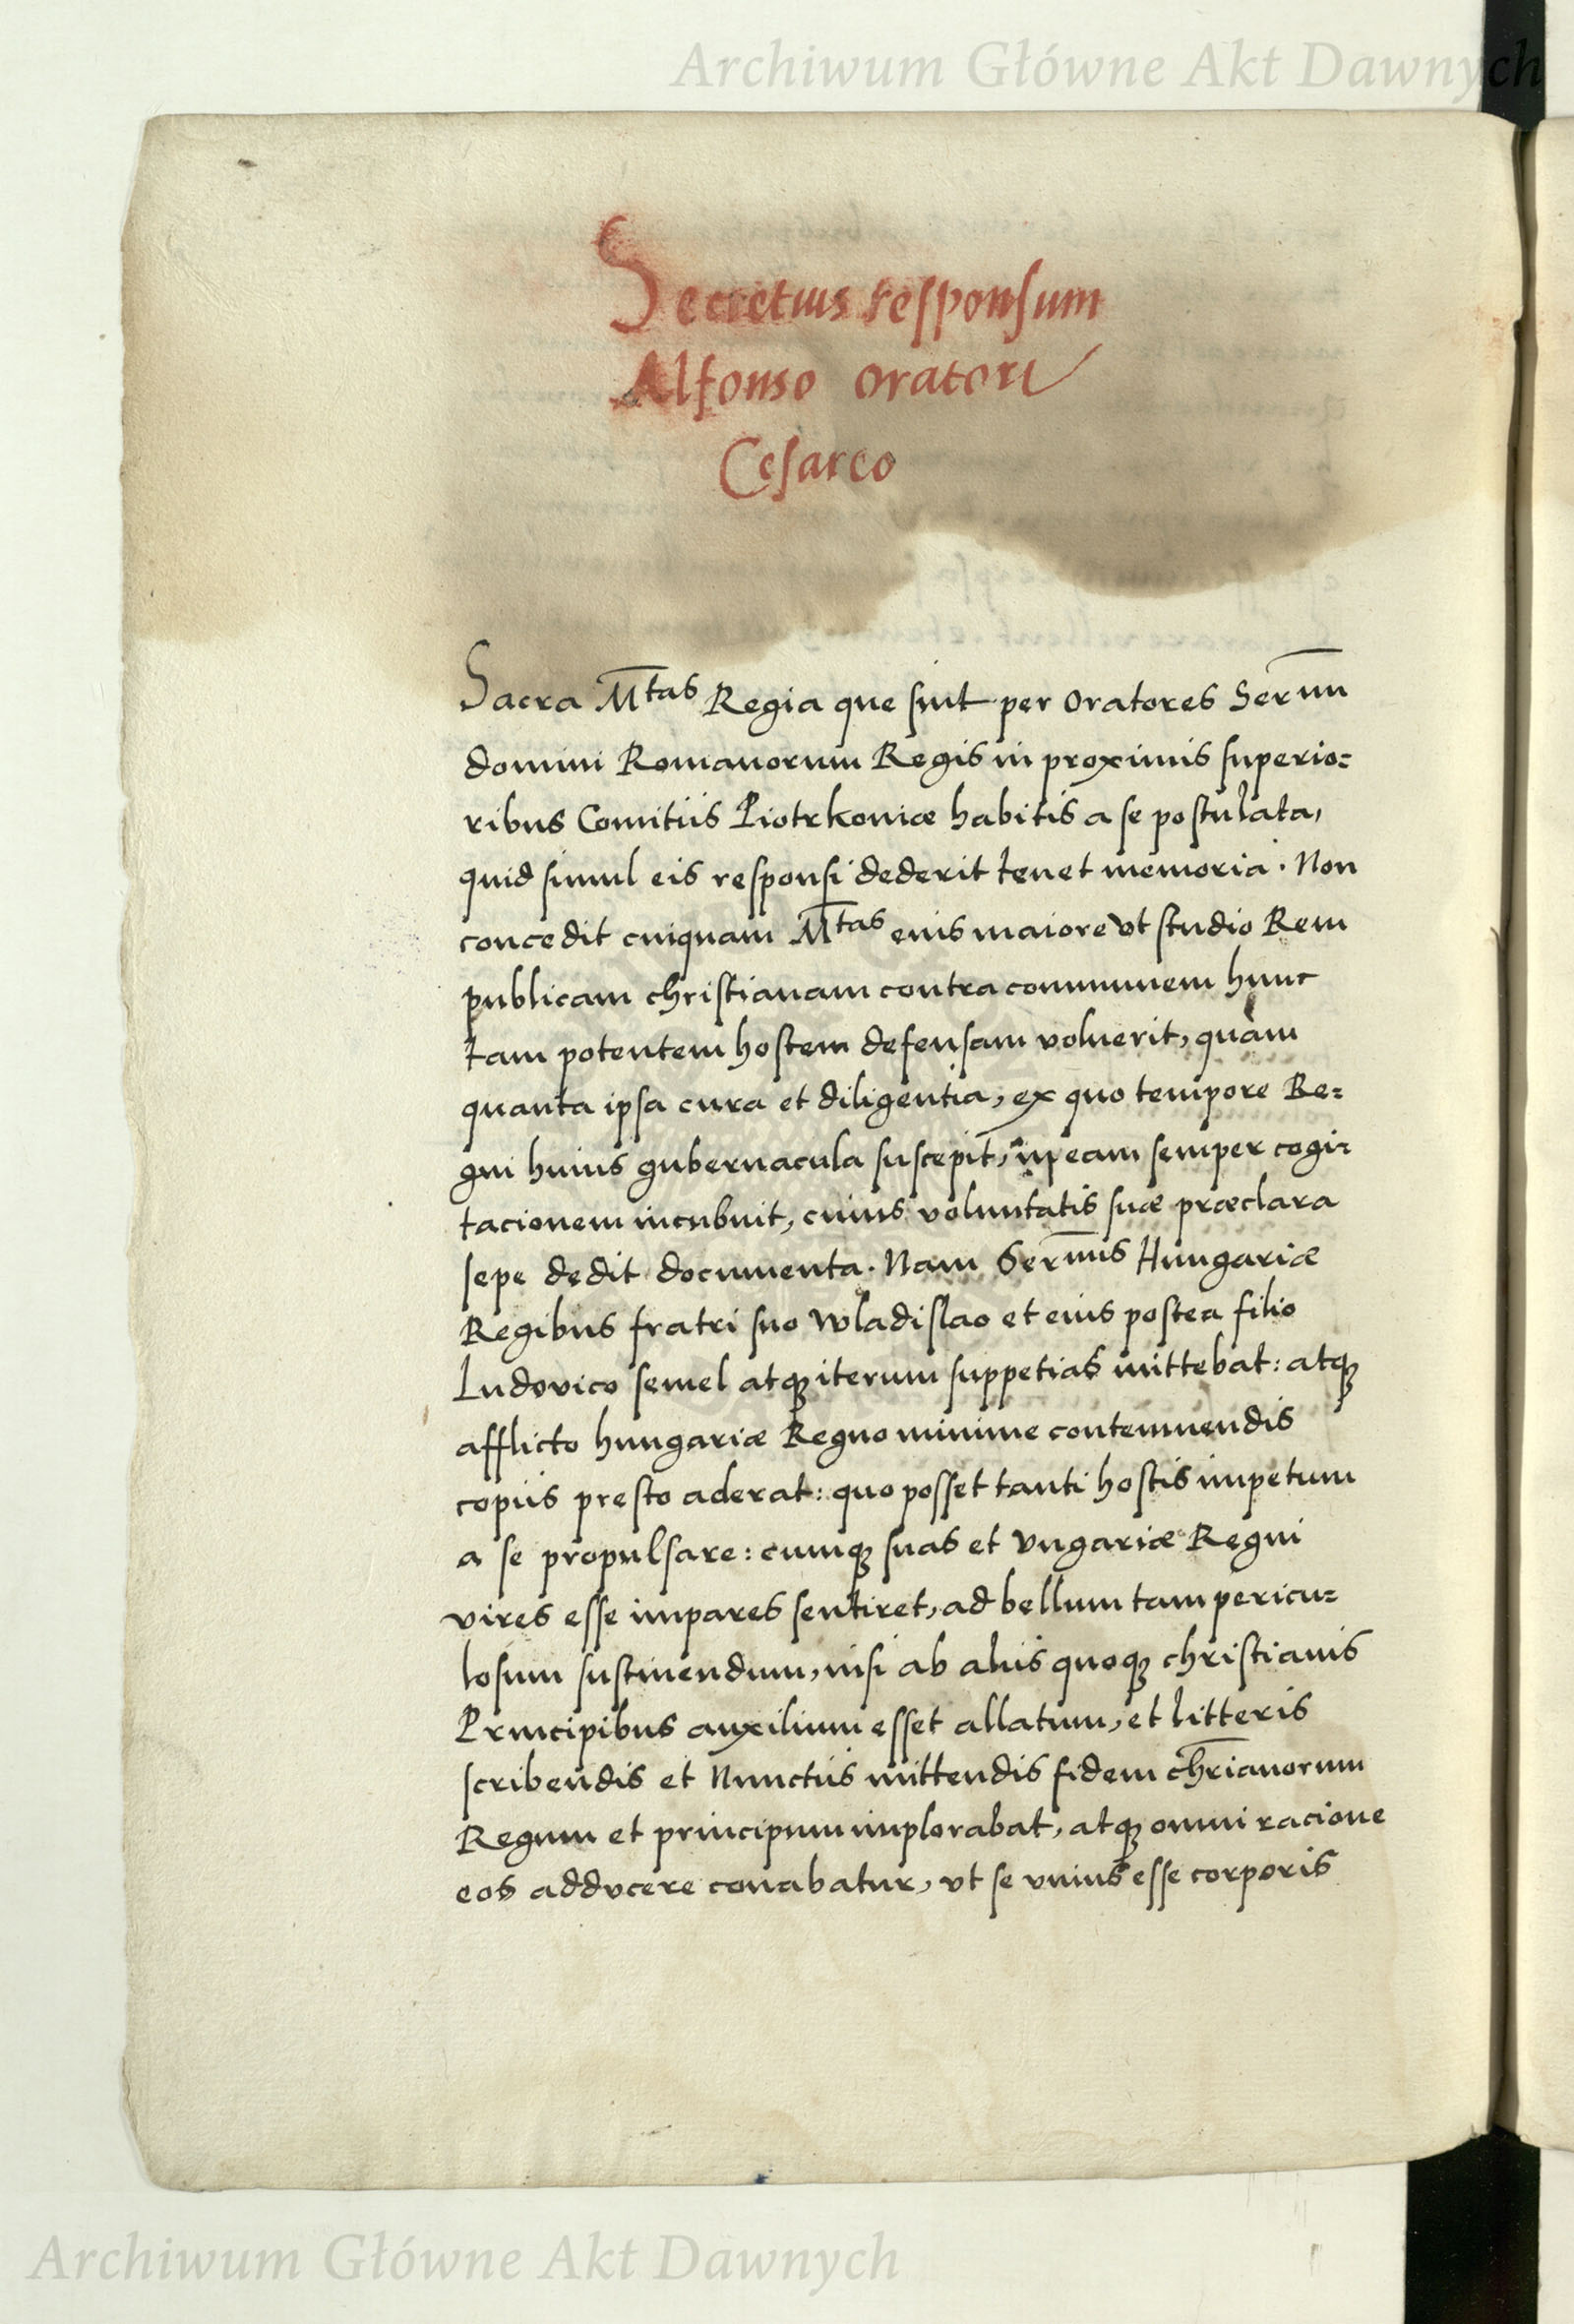 Archiwum Główne Akt Dawnych
Secretius responsum
Alfonso oratori
Cesareo
Sacra Mtas Regia que sint per Oratores Sermi
domini Romanorum Regis in proximis superio=
ribus Comitiis Piotrkoviæ habitis a se postulata,
quid simul eis responsi dederit tenet memoria. Non
concedit cuiquam Mtas eius maiore vt studio Rem
publicam christianam contra communem hunc
tam potentem hostem defensam voluerit, quam
quanta ipsa cura et diligentia, ex quo tempore Re=
gni huius gubernacula suscepit, in eam semper cogi=
tacionem incubuit, cuius voluntatis suæ præclara
sepe dedit documenta. Nam Sermis Hungariæ
Regibus fratri suo Wladislao et eius postea filio
Ludovico semel atq iterum suppetias mittebat: atq
afflicto hungariæ Regno minime contemnendis
copiis presto aderat: quo posset tanti hostis impetum
a se propulsare: cumq suas et Vngariæ Regni
vires esse impares sentiret, ad bellum tam pericu=
losum sustinendum, nisi ab aliis quoq christianis
Principibus auxilium esset allatum, et litteris
scribendis et Nunctiis mittendis fidem chrianorum
Regum et principum implorabat, atq omni racione
eos addvcere conabatur, vt se vnius esse corporis
Archiwum Główne Akt Dawnych